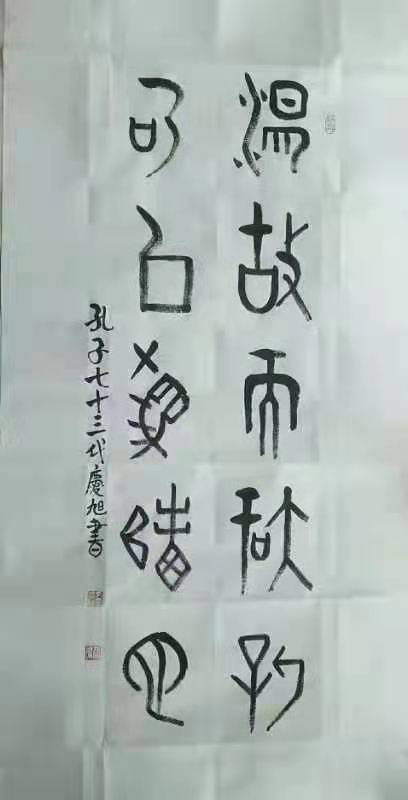 温故而知新
可以為師矣
孔子七十三代慶旭書